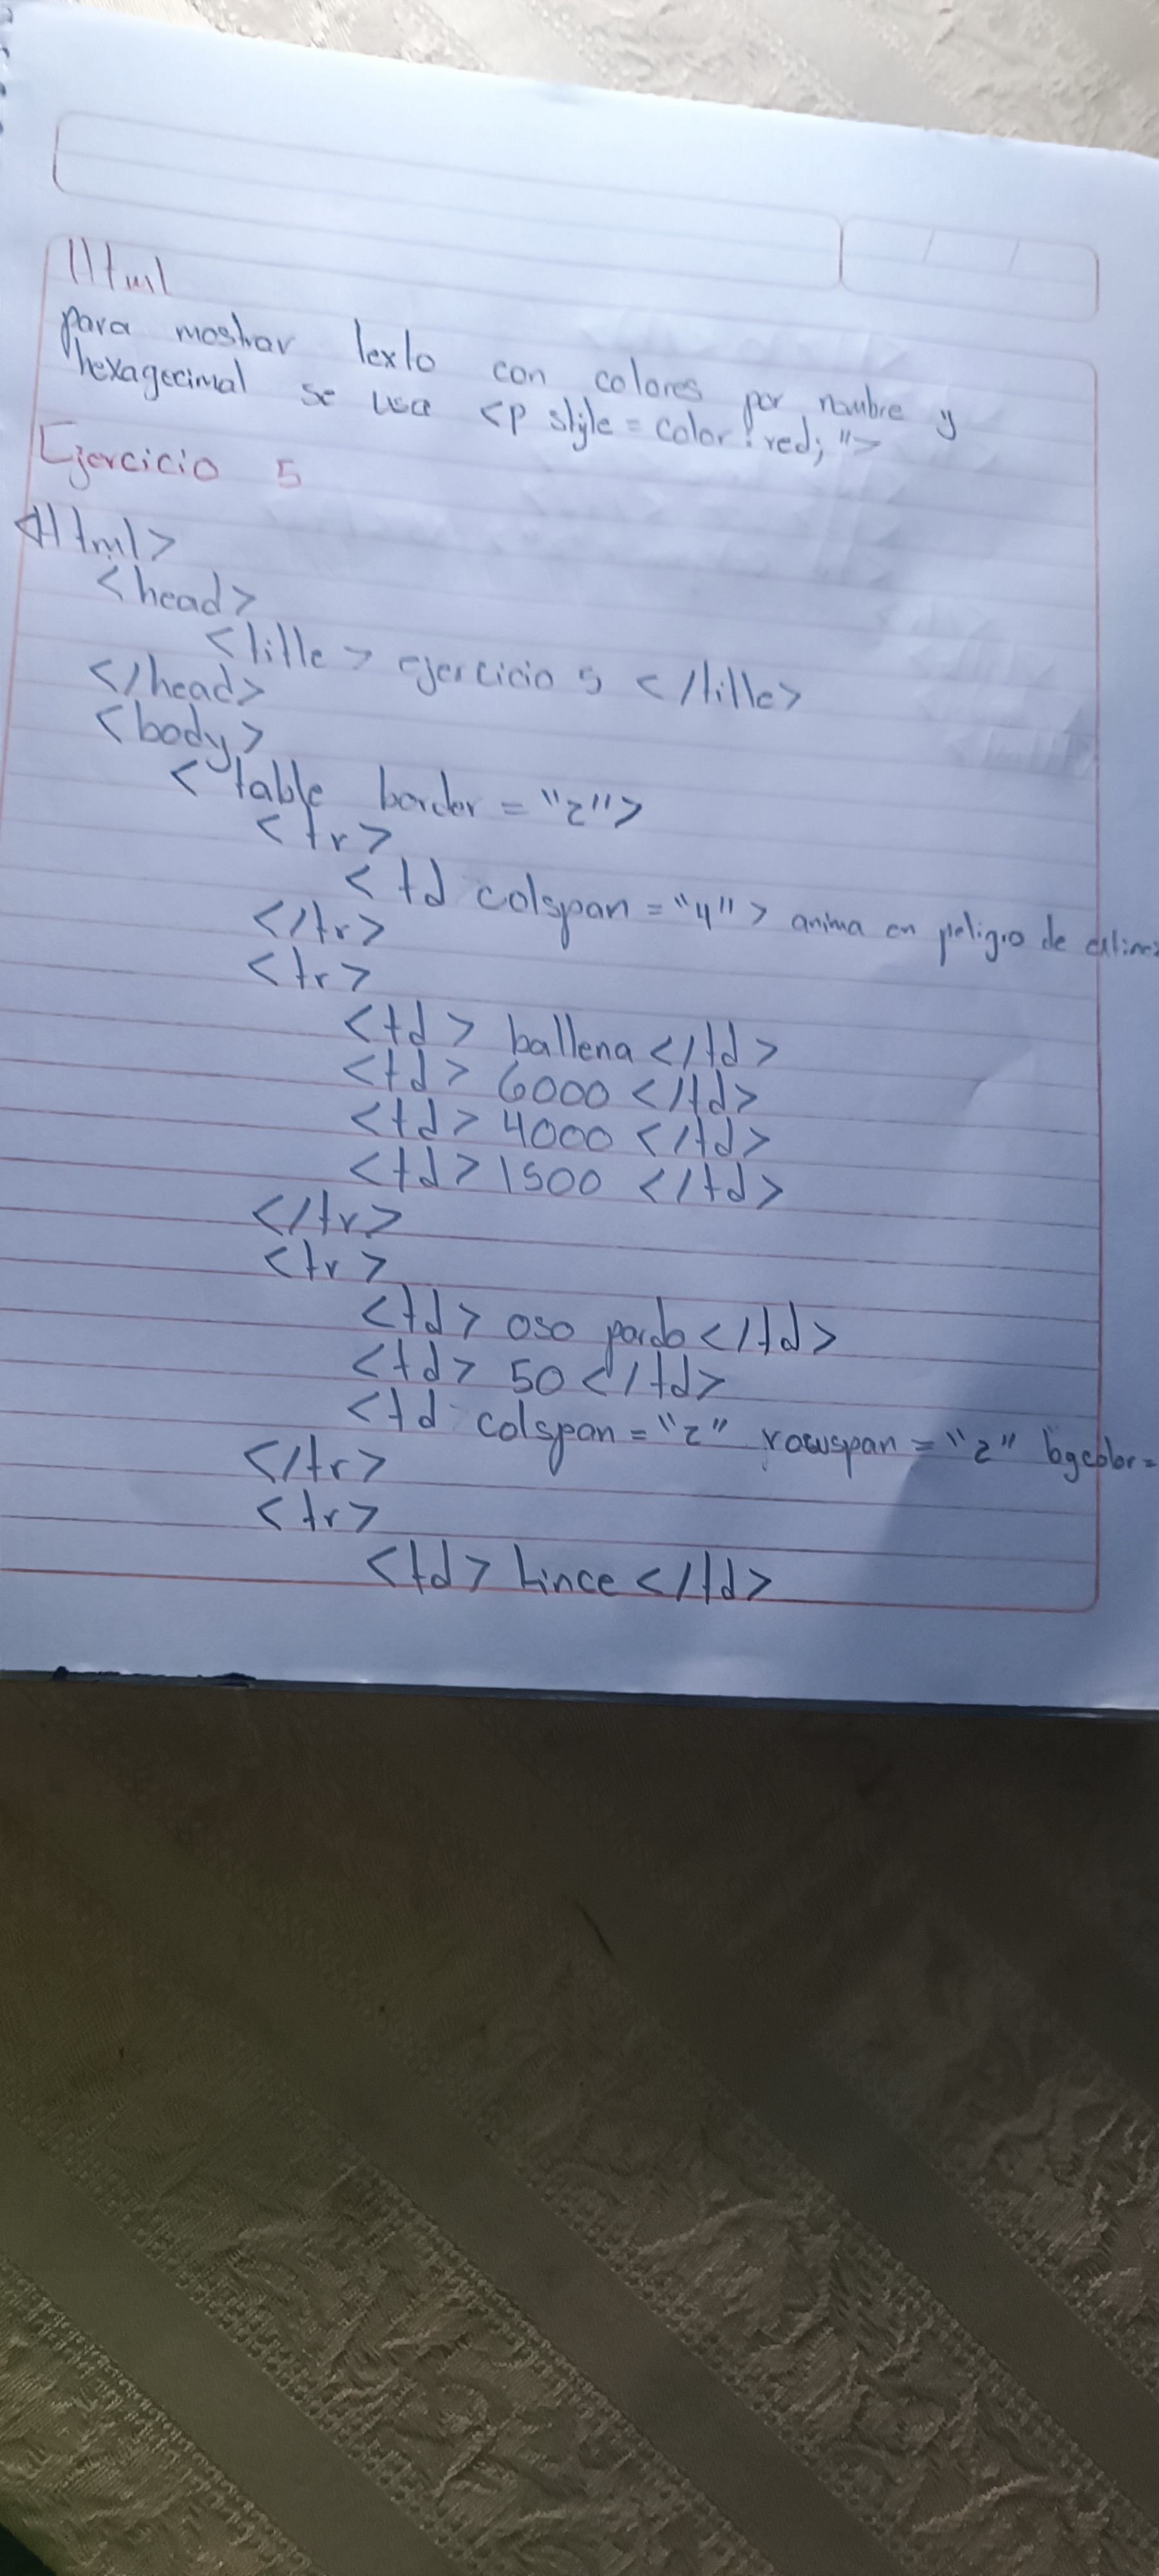 Html
para mostrar texto con colores por nombre y
hexagecimal se usa <p style = color: red; ">
Ejercicio 5
<Html>
<head>
<title> ejercicio 5 </title>
</head>
<body>
<table border = "2">
<tr>
<td colspan = "4"> anima en peligro de
</tr>
<tr>
<td> ballena </td>
<td> 6000 </td>
<td> 4000 </td>
<td> 1500 </td>
</tr>
<tr>
<td> oso pardo </td>
<td> 50 </td>
<td colspan = "2" rowspan = "2" bgcolor =
</tr>
<tr>
<td> Lince </td>